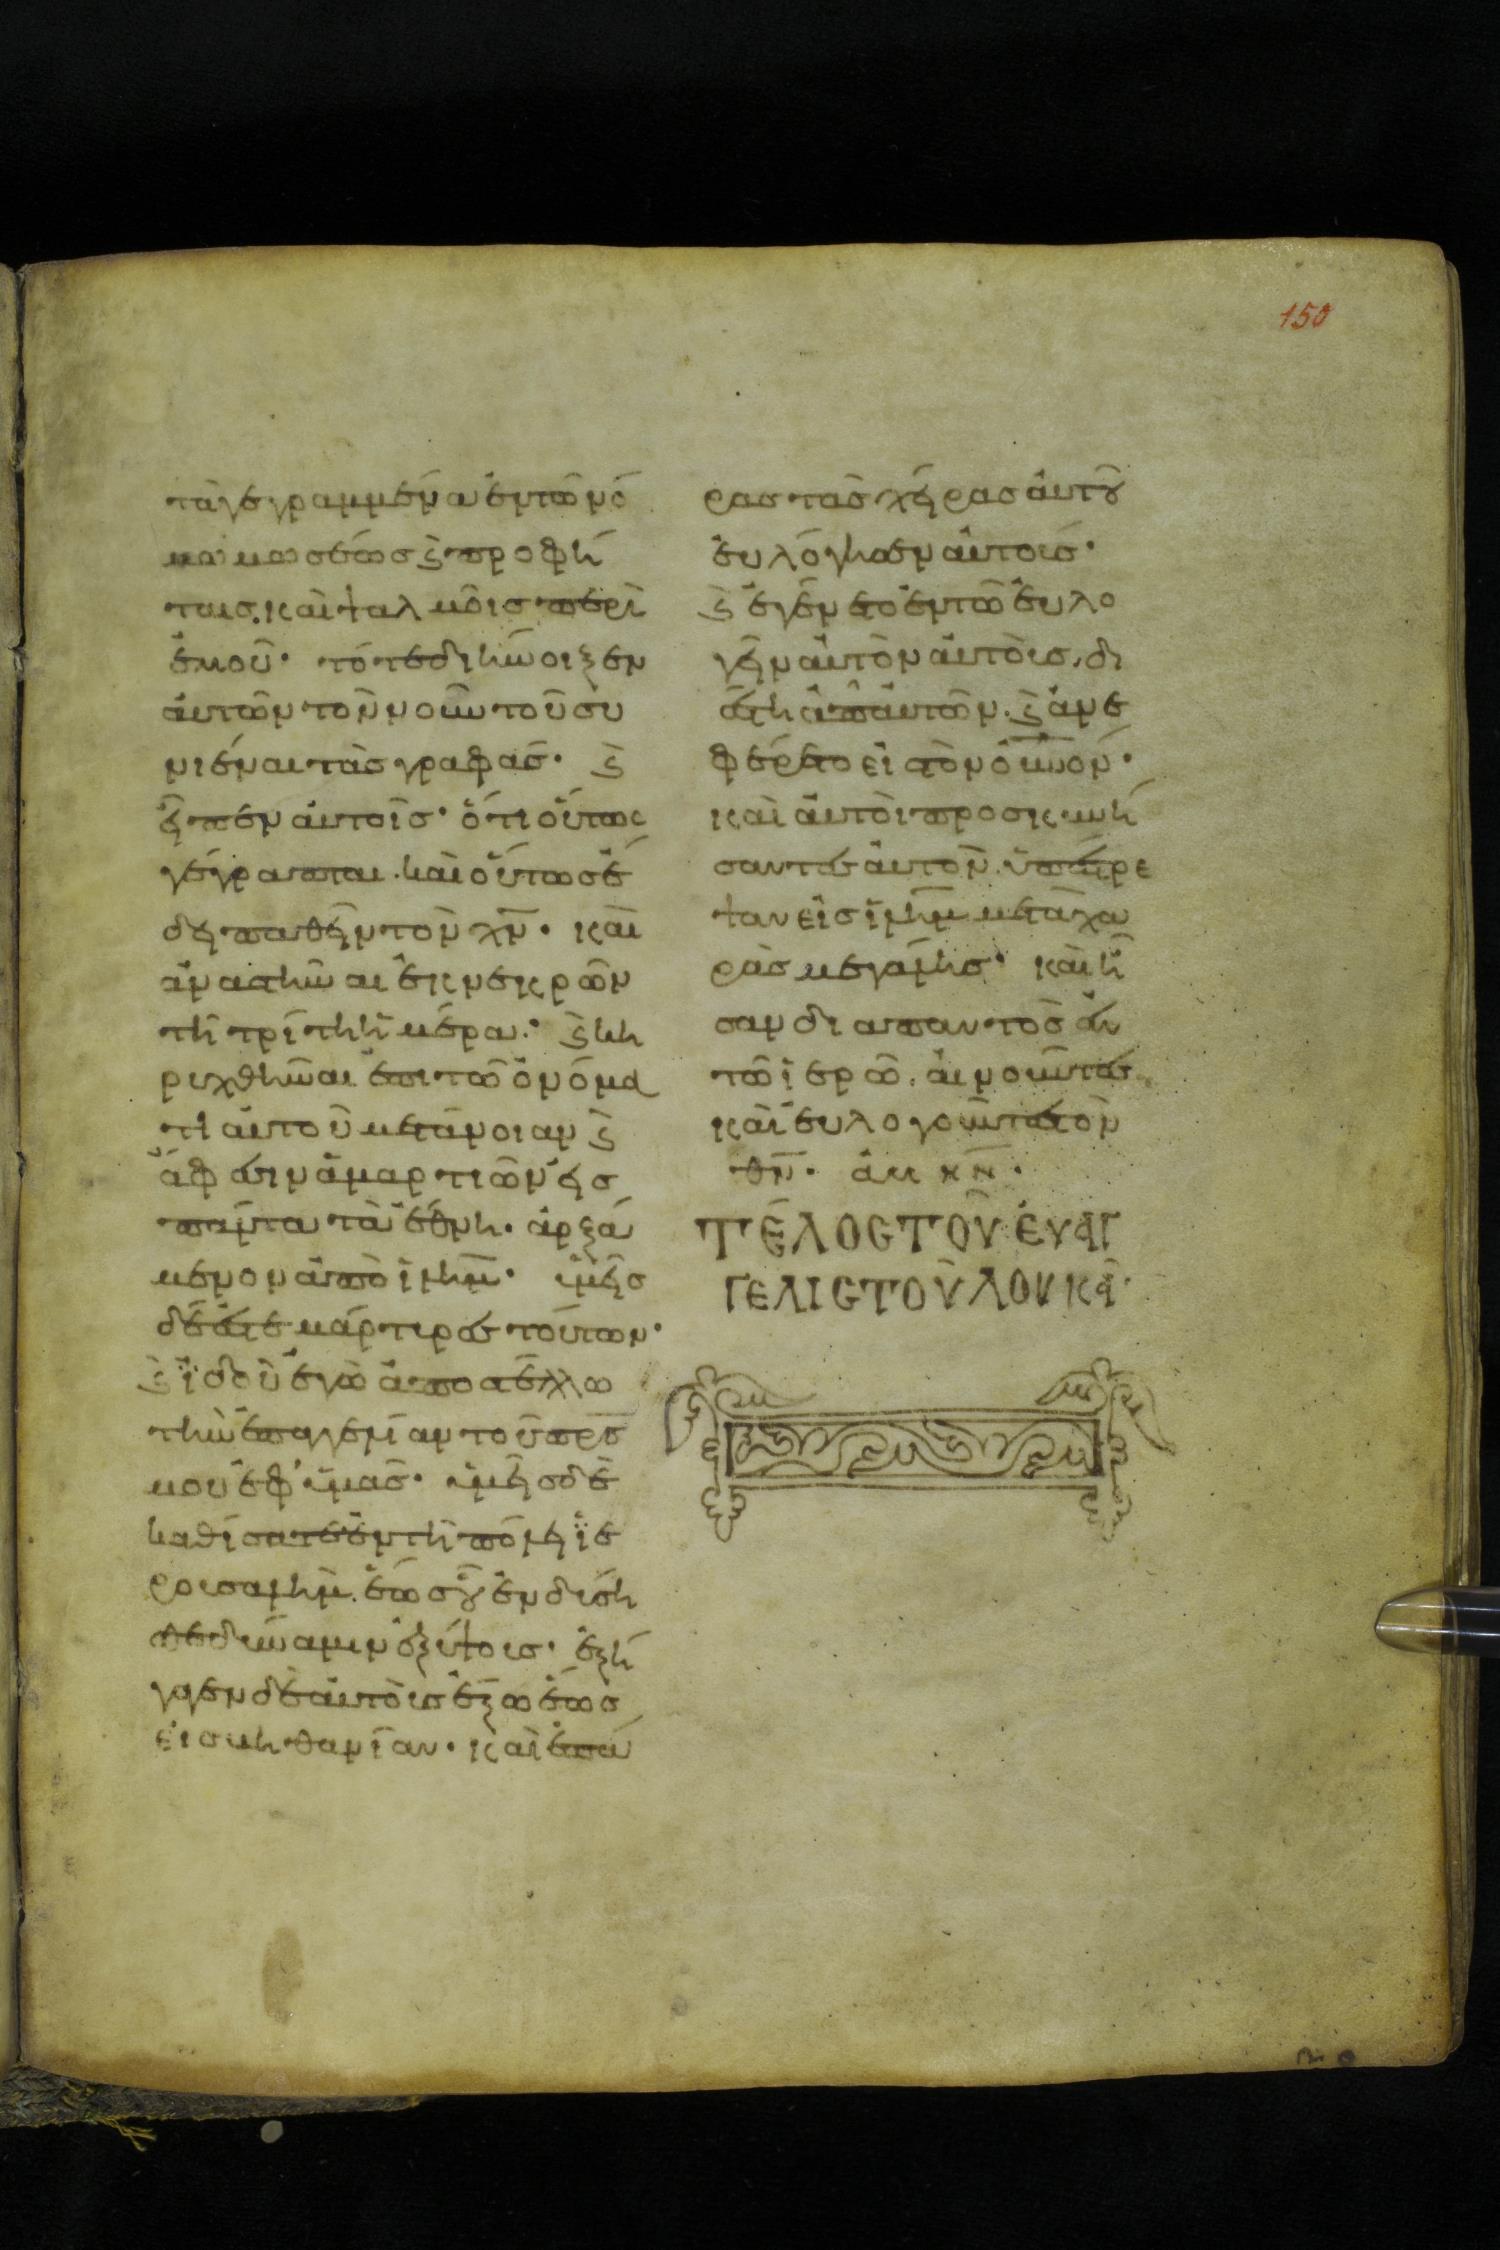 150
τὰ γεγραμμένα ἐν τῶ νό
μω μωσέως ϗ προφή
ταις. καὶ ψαλμοῖς περὶ
ἐμοῦ· τότε διήνοιξεν
αὐτῶν τὸν νοῦν τοῦ συ
νιέναι τὰς γραφάς· ϗ
εἶπεν αὐτοῖς· ὅτι οὕτως
γέγραπται. καὶ οὕτως ἔ
δει παθεῖν τὸν χν̅· καὶ
ἀναστῆναι ἐκ νεκρῶν
τῆ τρίτη ἡμέρα· ϗ κη
ρυχθῆναι ἐπὶ τῶ ὀνόμα
τι αὐτοῦ μετάνοιαν ϗ
ἄφεσιν ἁμαρτιῶν εἰς
πάντα τὰ ἔθνη. ἀρξά
μενον ἀπὸ ἱλημ̅· ὑμεῖς
δέ ἐστε μάρτυρες τούτων·
ϗ ἰδοὺ ἐγὼ ἀποστέλλω
τὴν ἐπαγγελίαν τοῦ πρς̅
μου ἐφ' ὑμᾶς· ὑμεῖς δὲ
καθίσατε ἐν τῆ πόλει ϊε
ρουσαλὴμ. ἕως οὗ ἐνδύση
σθε δύναμιν ἐξ ὕψους· ἐξή
γαγεν δὲ αὐτοὺς ἔξω ἕως
εἰς βηθανίαν. καὶ ἐπά
ρας τὰς χεῖρας αὐτοῦ
εὐλόγησεν αὐτούς·
ϗ ἐγένετο ἐν τῶ εὐλο
γεῖν αὐτὸν αὐτοὺς, δι
έστη ἀπ' αὐτῶν. ϗ ἀνε
φέρετο εἰς τὸν οὐνον̅·
καὶ αὐτοὶ προσκυνή
σαντες αὐτὸν. ὑπέστρε
ψαν εἰς ἱλημ̅ μετὰ χα
ρᾶς μεγάλης· καὶ ἦ
σαν διαπαντὸς ἐν
τῶ ἱερῶ. αἰνοῦντες
καὶ εὐλογοῦντες τὸν
θν̅· ἀμήν·
ΤΕΛΟΣ ΤΟΥ ΕΥΑΓ
ΓΕΛΙΣ ΤΟΥ ΛΟΥΚΑ·